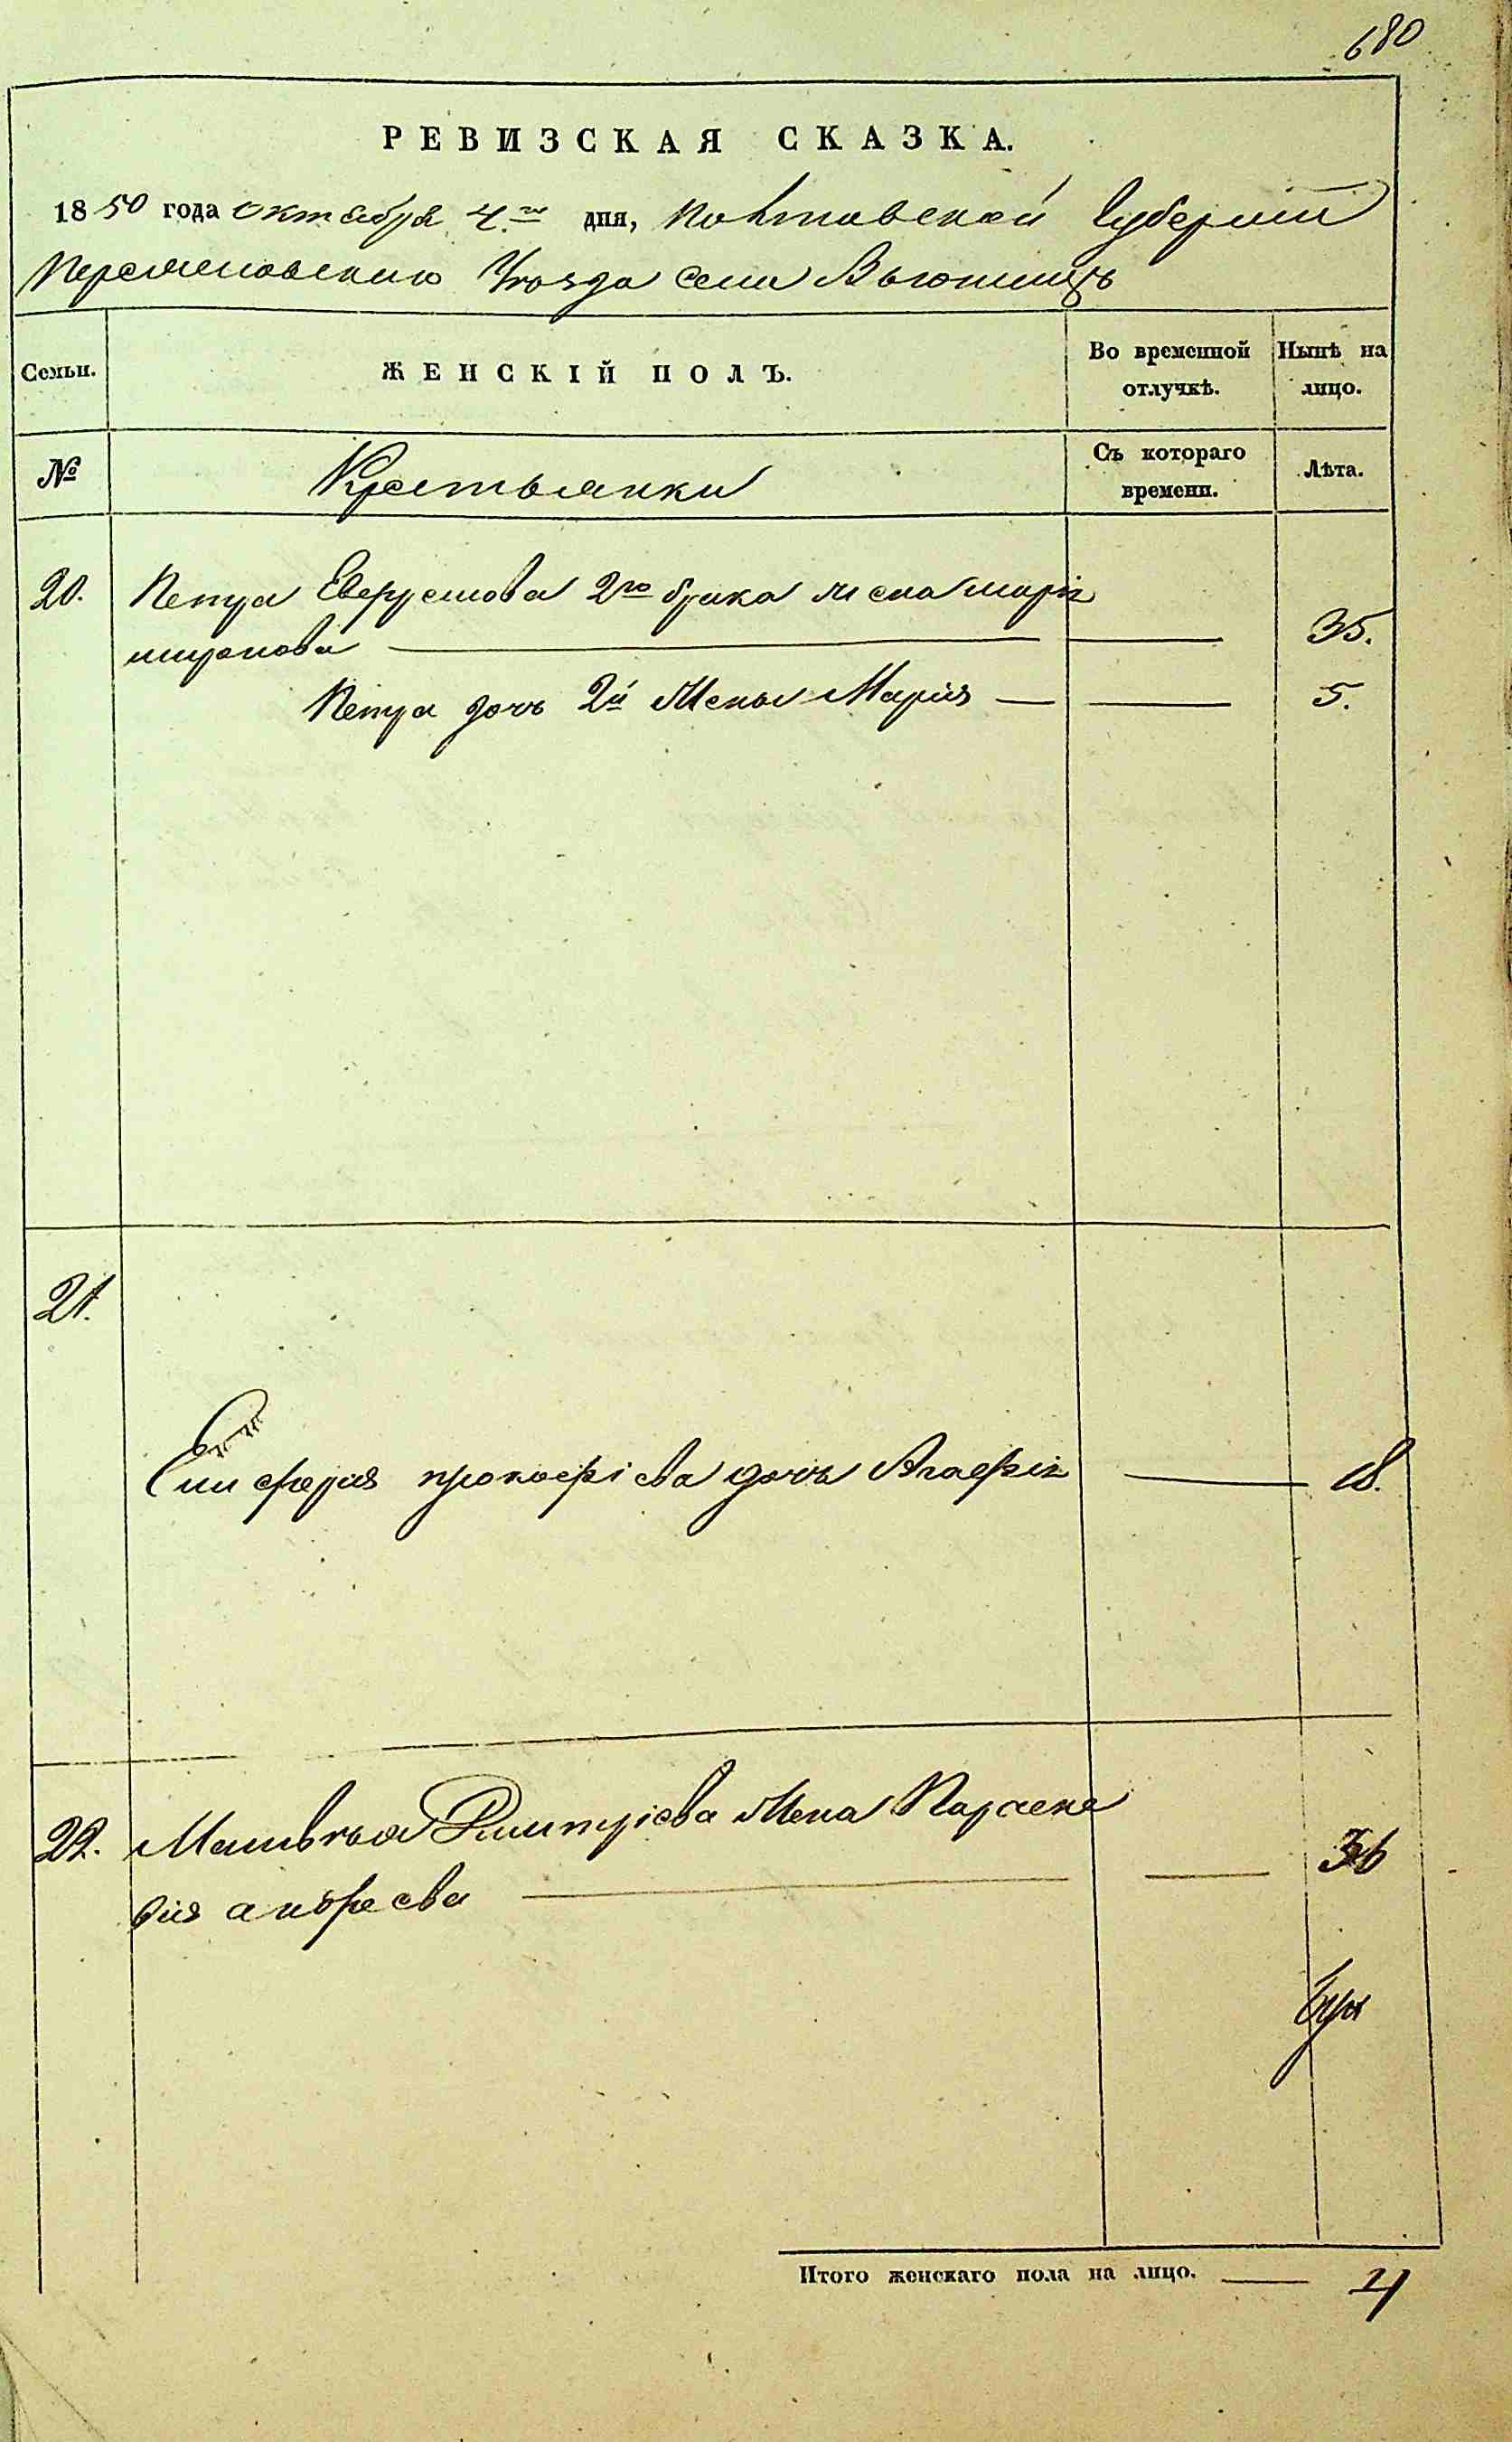 680
РЕВИЗСКАЯ СКАЗКА.
1850 года октября 4го дня, Полтавской Губерніи
Переяславскаго Уѣзда села Вьюнищъ
Семьи.
ЖЕНСКІЙ ПОЛЪ.
Во временной отлучкѣ.
Нынѣ на лицо.
№
Крестьянки
Съ котораго времени.
Лѣта.
20. Петра Евфремова 2го брака жена марія
миронова — — 35.
Петра дочь 2й Жены Марія — — 5.
21.
прокофіева дочь Агафія — 18.
22. Матвѣя Дмитріева Жена Параске
вія андреева — — 36
Итого женскаго пола на лицо. — 4